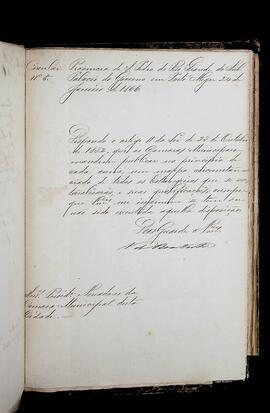 Circular Provincia de S. Pedro do Rio Grande do Sul
Nº 5. Palacio do Governo em Porto Alegre 24 de
Janeiro de 1866.
Dispondo o artigo 11 da Lei de 23 de Outubro
de 1832, que as Camaras Municipaes
mandem publicar no principio de
cada anno, um mappa
de todos os Estrangeiros que se
e suas
Vmces me informem se tem ou
não sido executada aquella disposição.
Deos Guarde a Vmces.
Snrs. Presidte. e Vereadores da
Camara Municipal desta
Cidade.